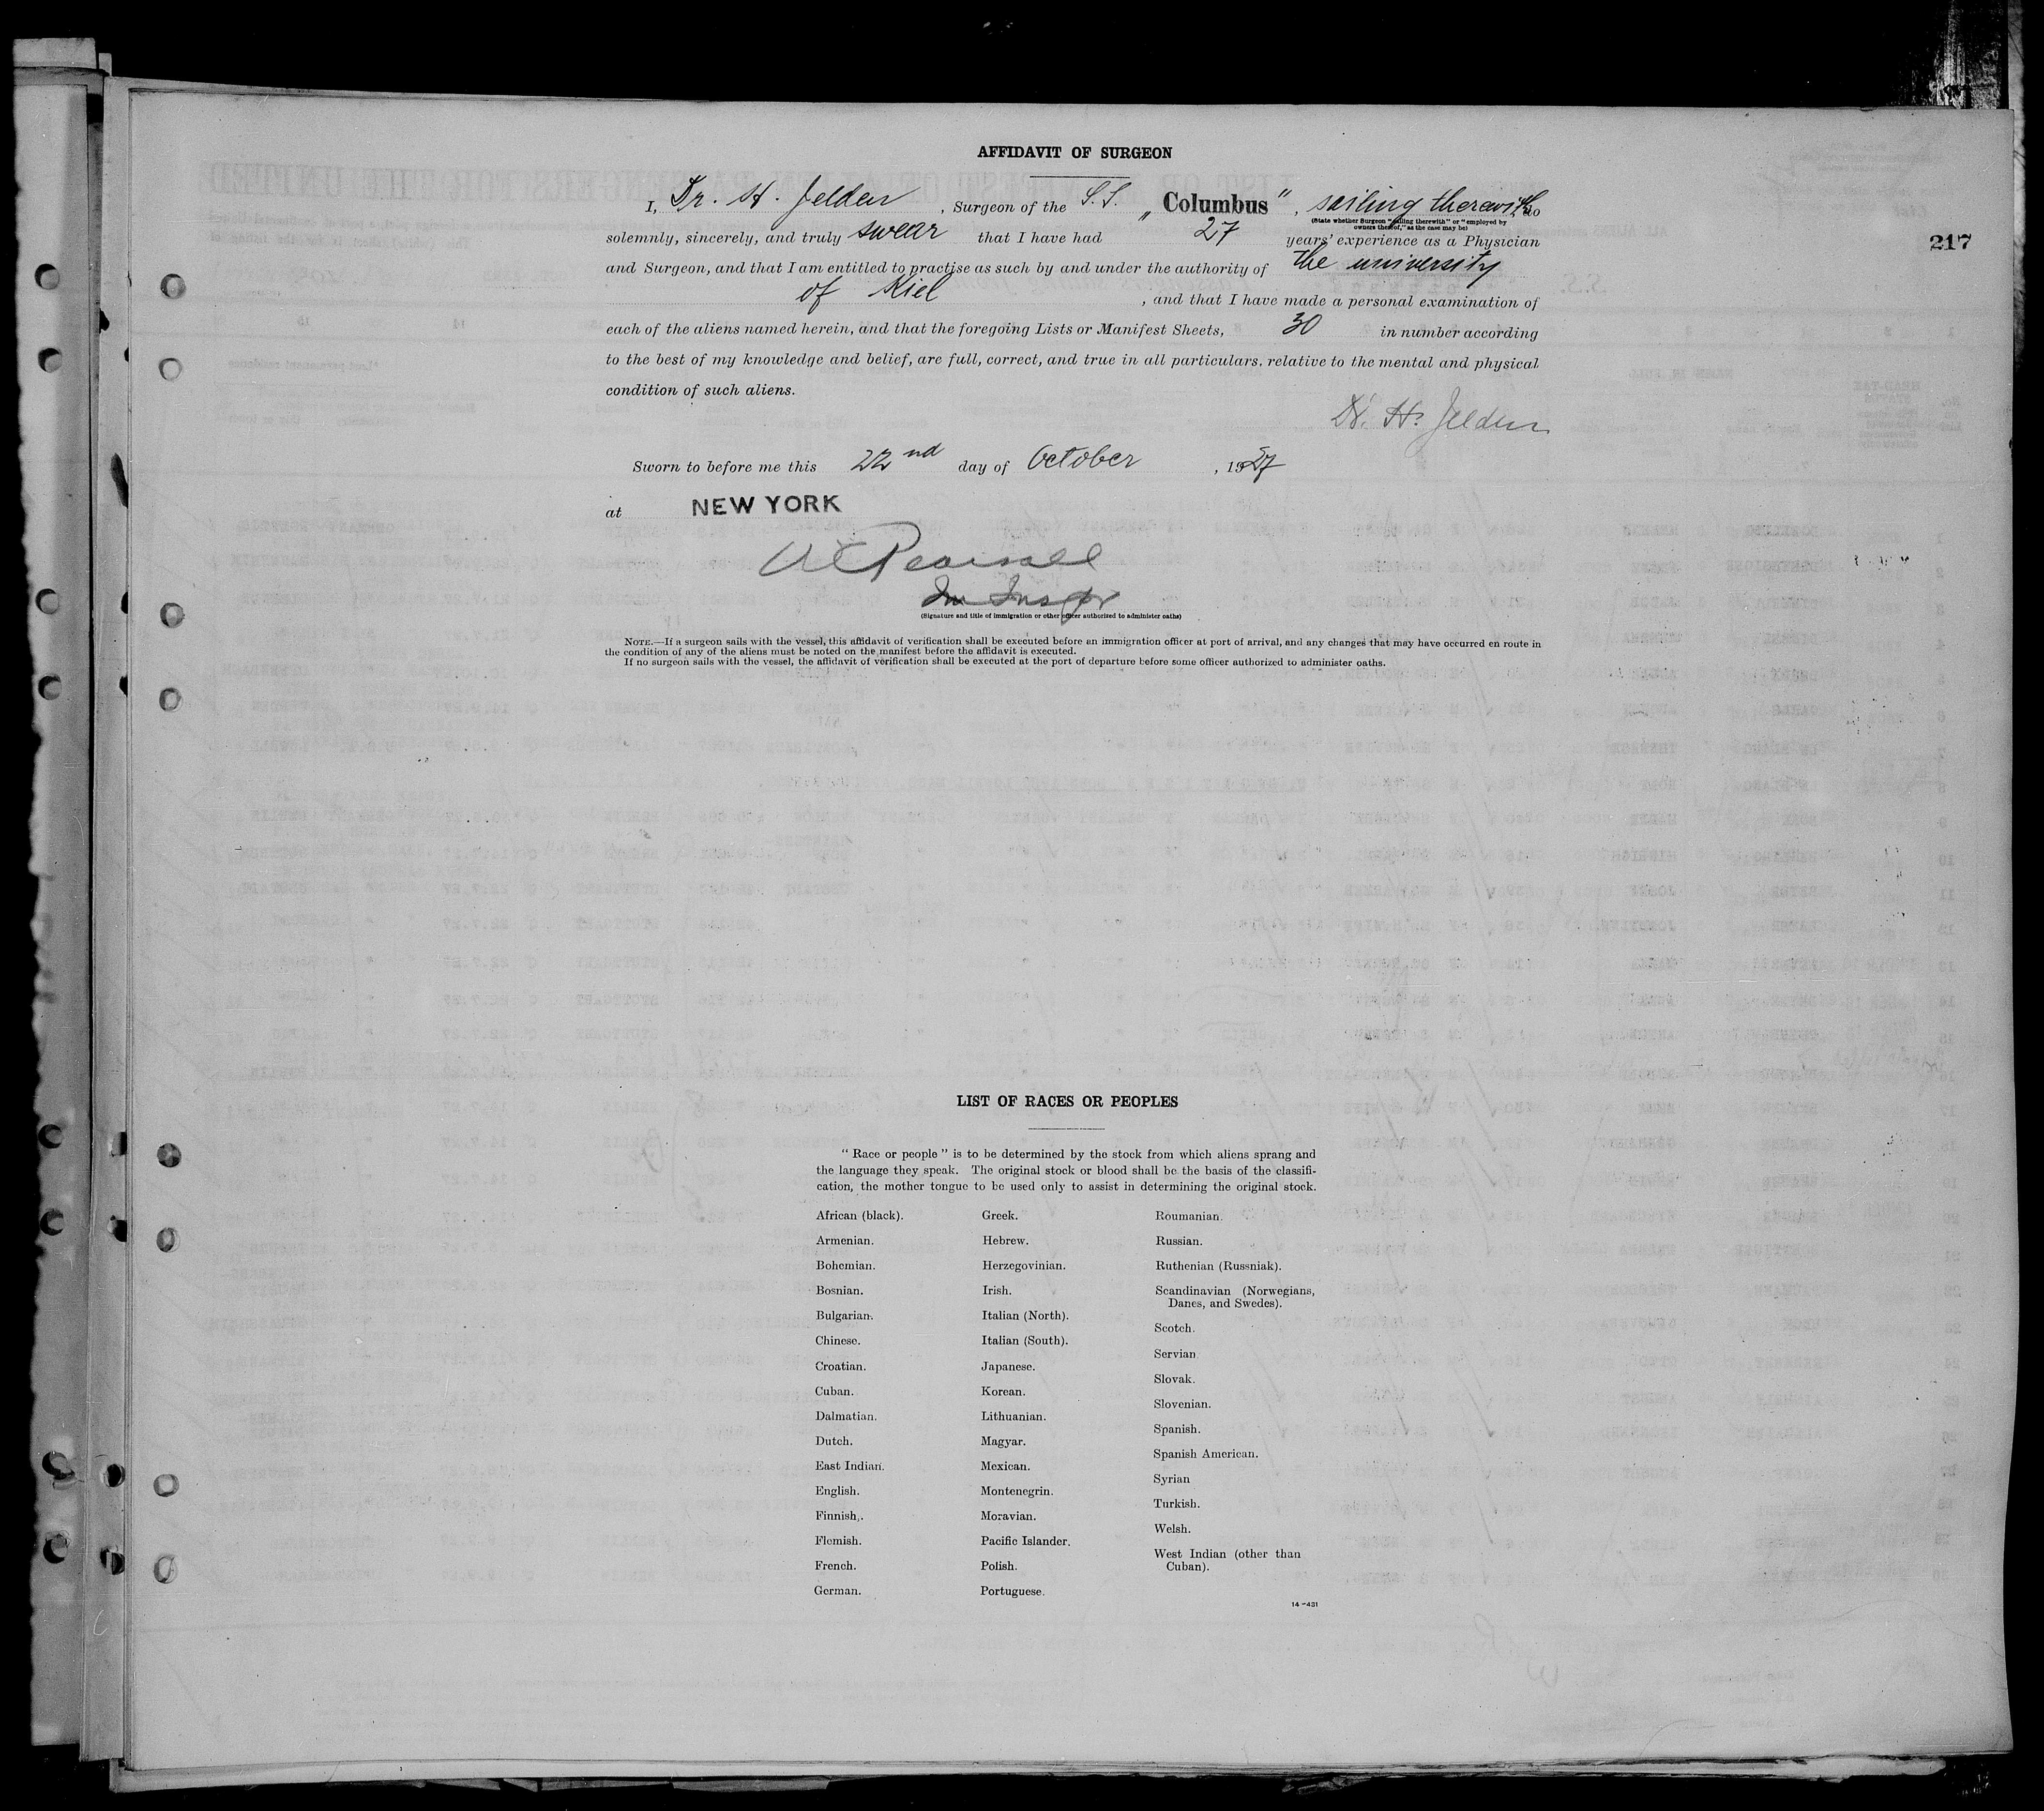 AFFIDAVIT OF SURGEON
I, Dr. H. Jelden, Surgeon of the S.S. „Columbus“, sailing therewith, do
(State whether Surgeon "sailing therewith" or "employed by owners thereof," as the case may be)
217
solemnly, sincerely, and truly swear that I have had 27 years' experience as a Physician
and Surgeon, and that I am entitled to practise as such by and under the authority of the university
of Kiel, and that I have made a personal examination of
each of the aliens named herein, and that the foregoing Lists or Manifest Sheets, 30 in number according
to the best of my knowledge and belief, are full, correct, and true in all particulars, relative to the mental and physical
condition of such aliens.
Dr. H. Jelden
Sworn to before me this 22nd day of October, 1927
at NEW YORK
Pearsall
Im Inspr
(Signature and title of immigration or other officer authorized to administer oaths)
NOTE.—If a surgeon sails with the vessel, this affidavit of verification shall be executed before an immigration officer at port of arrival, and any changes that may have occurred en route in
the condition of any of the aliens must be noted on the manifest before the affidavit is executed.
If no surgeon sails with the vessel, the affidavit of verification shall be executed at the port of departure before some officer authorized to administer oaths.
LIST OF RACES OR PEOPLES
"Race or people" is to be determined by the stock from which aliens sprang and
the language they speak. The original stock or blood shall be the basis of the classifi-
cation, the mother tongue to be used only to assist in determining the original stock.
African (black).
Armenian.
Bohemian.
Bosnian.
Bulgarian.
Chinese.
Croatian.
Cuban.
Dalmatian.
Dutch.
East Indian.
English.
Finnish.
Flemish.
French.
German.
Greek.
Hebrew.
Herzegovinian.
Irish.
Italian (North).
Italian (South).
Japanese.
Korean.
Lithuanian.
Magyar.
Mexican.
Montenegrin.
Moravian.
Pacific Islander.
Polish.
Portuguese.
Roumanian.
Russian.
Ruthenian (Russniak).
Scandinavian (Norwegians,
Danes, and Swedes).
Scotch.
Servian
Slovak.
Slovenian.
Spanish.
Spanish American.
Syrian
Turkish.
Welsh.
West Indian (other than
Cuban).
14—431